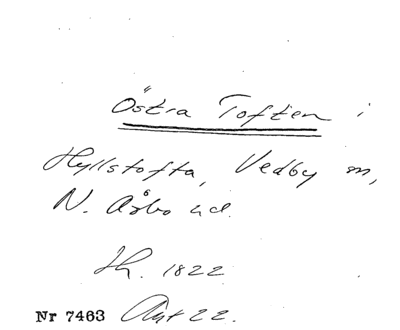 Östra Toften i
Hyllstofta, Vedby sn,
N. Åsbo hd.
Th. 1822
Nr 7463 Art 22.